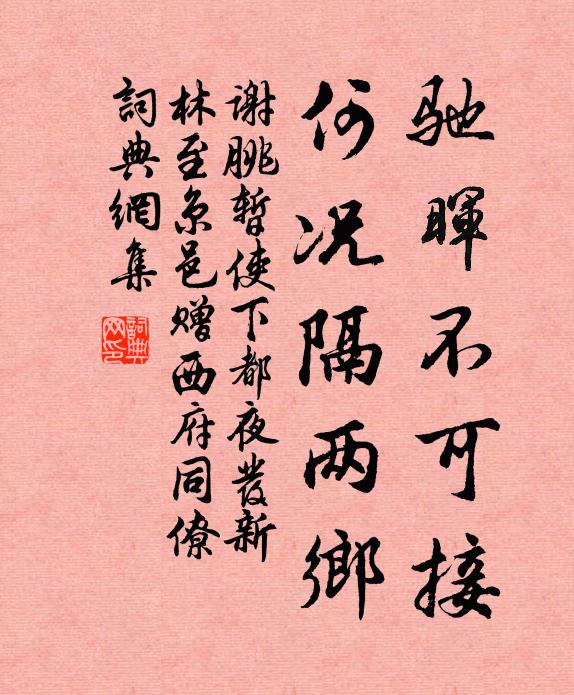 驰暉不可接
何况隔两鄉
谢朓暂使下都夜發新
林至京邑赠西府同僚
詞典網集
詞典网印